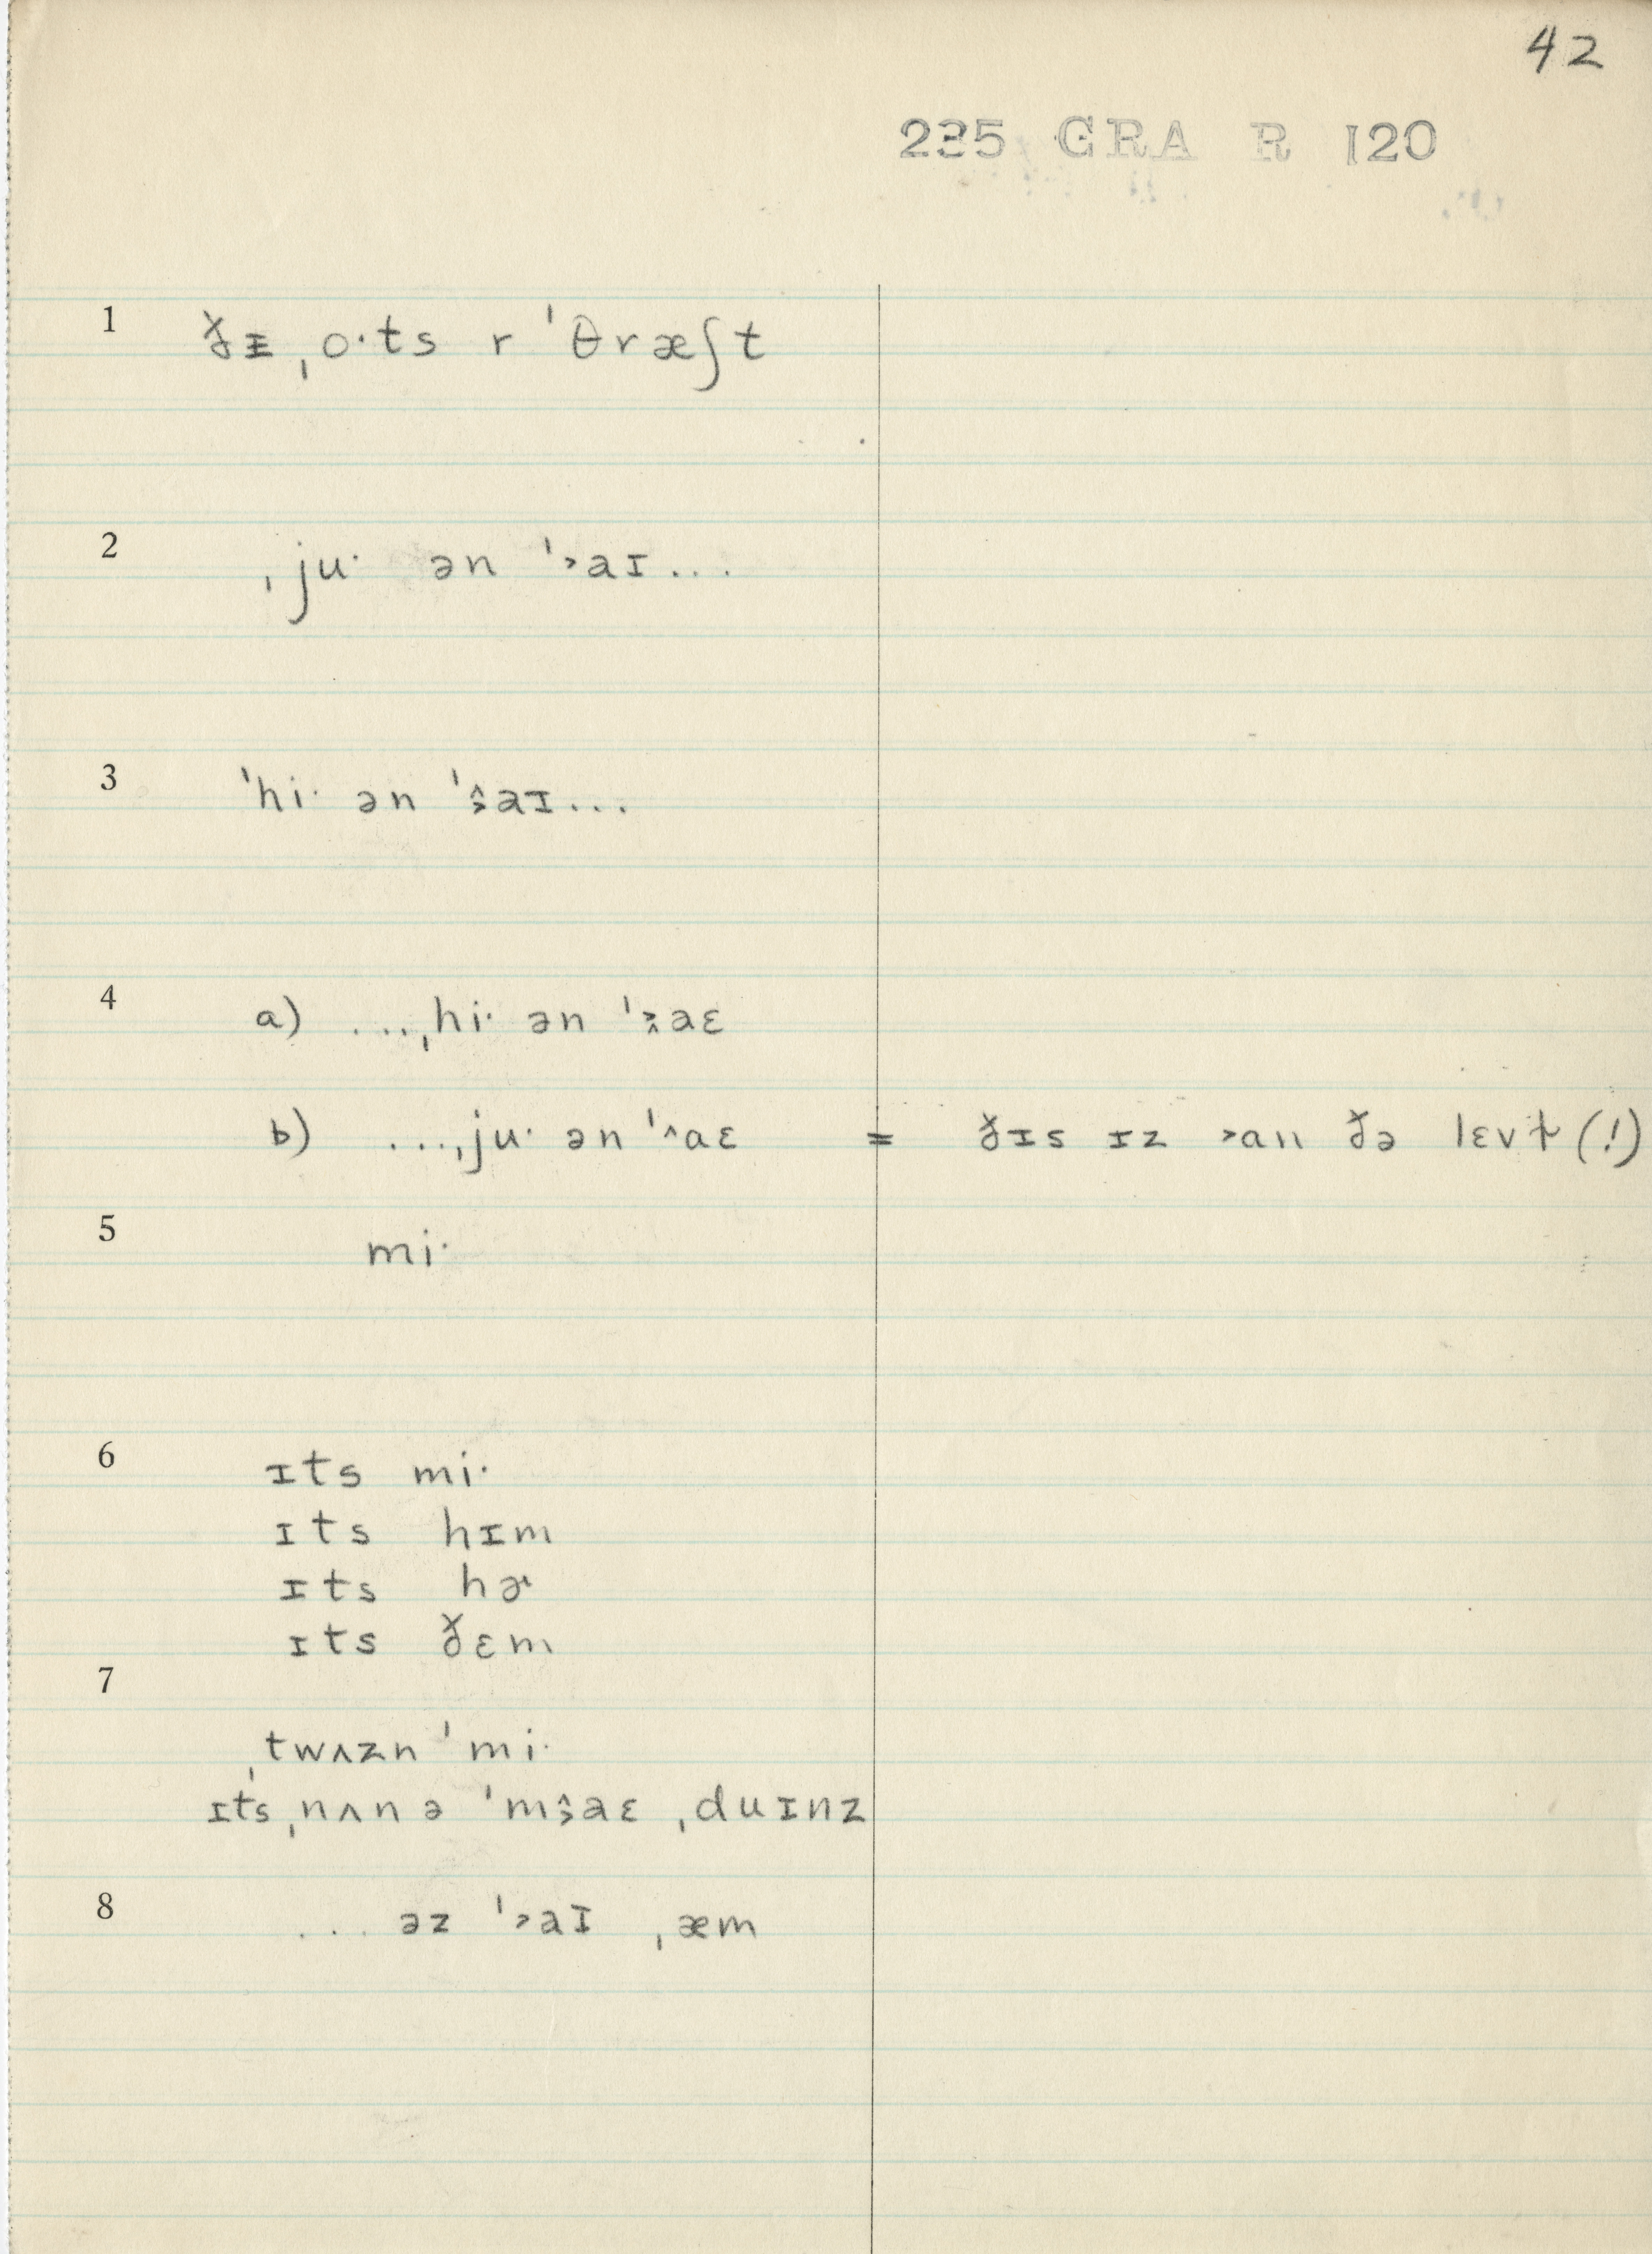 42
235 GRA R 120
1 ðᵻ ˌo·ts r ˈθræʃt
2 ˌju· ən ˈ˃aɪ...
3 ˈhi· ən ˈ˄˃aɪ...
4 a) ...ˌhi· ən ˈ˃˄aɛ
b) ...ˌju· ən ˈ˄aɛ = ðɪs ɪz ˃an ðə lɛvt(!)
5 mi·
6 ɪts mi·
ɪts hɪm
ɪts hɚ
ɪts ðɛm
7
ˌtwʌzn ˈmi·
ɪts ˌnʌn ə ˈm˄˃aɛ ˌduɪnz
8 ... əz ˈ˃aɪ ˌæm